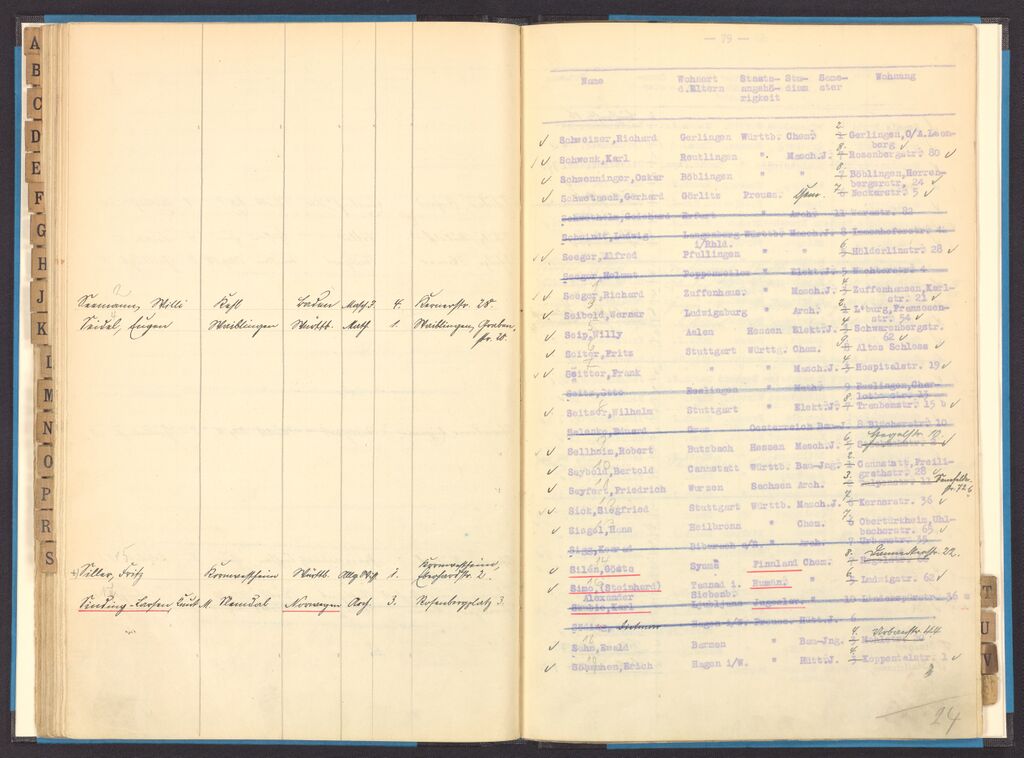 A
B
C
D
E
F
G
H
J
K
L
M
N
O
P
R
S
Seemann, Willi Kehl Baden Masch.J. 4. Kernerstr. 28.
Seidel, Eugen Waiblingen Württb. Math 1. Waiblingen, Graben-
str. 28.
Siller, Fritz Kornwestheim Württb. Allg. Wiss 1. Kornwestheim
Eberhardstr. 2.
Sinding-Larsen Knut M. Stendal Norwegen Arch. 3. Rosenbergplatz 3.
— 79 —
Name Wohnort Staats- Stu- Seme- Wohnung
d.Eltern angehö- dium ster
rigkeit
Schweizer,Richard Gerlingen Württb. Chem. 2. Gerlingen,O/A.Leon-
berg
Schwenk,Karl Reutlingen " Masch.J. 8. Rosenbergstr. 80
Schwenninger,Oskar Böblingen " " 8. Böblingen,Herren-
bergerstr. 24
Schwetasch,Gerhard Görlitz Preuss. Chem. 7. Neckarstr. 5
Erfurt " Arch. 11 Werastr. 82
Schwindt,Ludwig Langenberg Württb. Masch.J. 8
i/Rhld.
Seeger,Alfred Pfullingen " " 6. Hölderlinstr. 28
Seeger,Helmut Poppenweiler " Elekt.J. 5 Wächterstr. 4
Seeger,Richard Zuffenhaus. " Masch.J. 4. Zuffenhausen,Karl-
str. 21
Seibold,Werner Ludwigsburg " Arch. 2. L'burg,Franzosen-
str. 54
Seip,Willy Aalen Hessen Elekt.J. 4. Schwarenbergstr.
62
Seiter,Fritz Stuttgart Württg. Chem. 9. Altes Schloss
Seitter,Frank " " Masch.J. 4. Hospitalstr. 19
Seitz,Otto Esslingen " Math 9 Esslingen,Ober-
Seitzer,Wilhelm Stuttgart " Elekt.J. 8. Traubenstr. 15 b
Selenko,Eduard Graz Oesterreich Bau-J. 8 Blücherstr. 10
Sellheim,Robert Butzbach Hessen Masch.J. 6.
Seybold,Bertold Cannstatt Württb. Bau-Jng. 2. Cannstatt,Freili-
grathstr. 28
Seyfart,Friedrich Wurzen Sachsen Arch. 3. Tulpenstr. 11
str. 72 b
Sick,Siegfried Stuttgart Württb. Masch.J. 7. Kernerstr. 36
Siegel,Hans Heilbronn " Chem. 7. Obertürkheim,Uhl-
bacherstr. 65
Sigg,Konrad Biberach a/R. " Arch. 7 Urbanstr. 39
Silén,Gösta Syvma Finnland Chem. 8. Dannekerstr. 22.
Simo,(Steinherd) Tasnad i. Human. " Ludwigstr. 62
Alexander Siebenb.
Skubic,Karl Ljubljana Jugoslav. " 10 Lindenspürstr. 36
Söding, Dietmar Hagen i/W. Preuss. Hütt.J. 6
Sohn,Ewald Barmen " Bau-Jng. 4. Urbanstr. 44
Söhnchen,Erich Hagen i/W. " Hütt.J. 4. Koppentalstr. 1
24
T
U
V